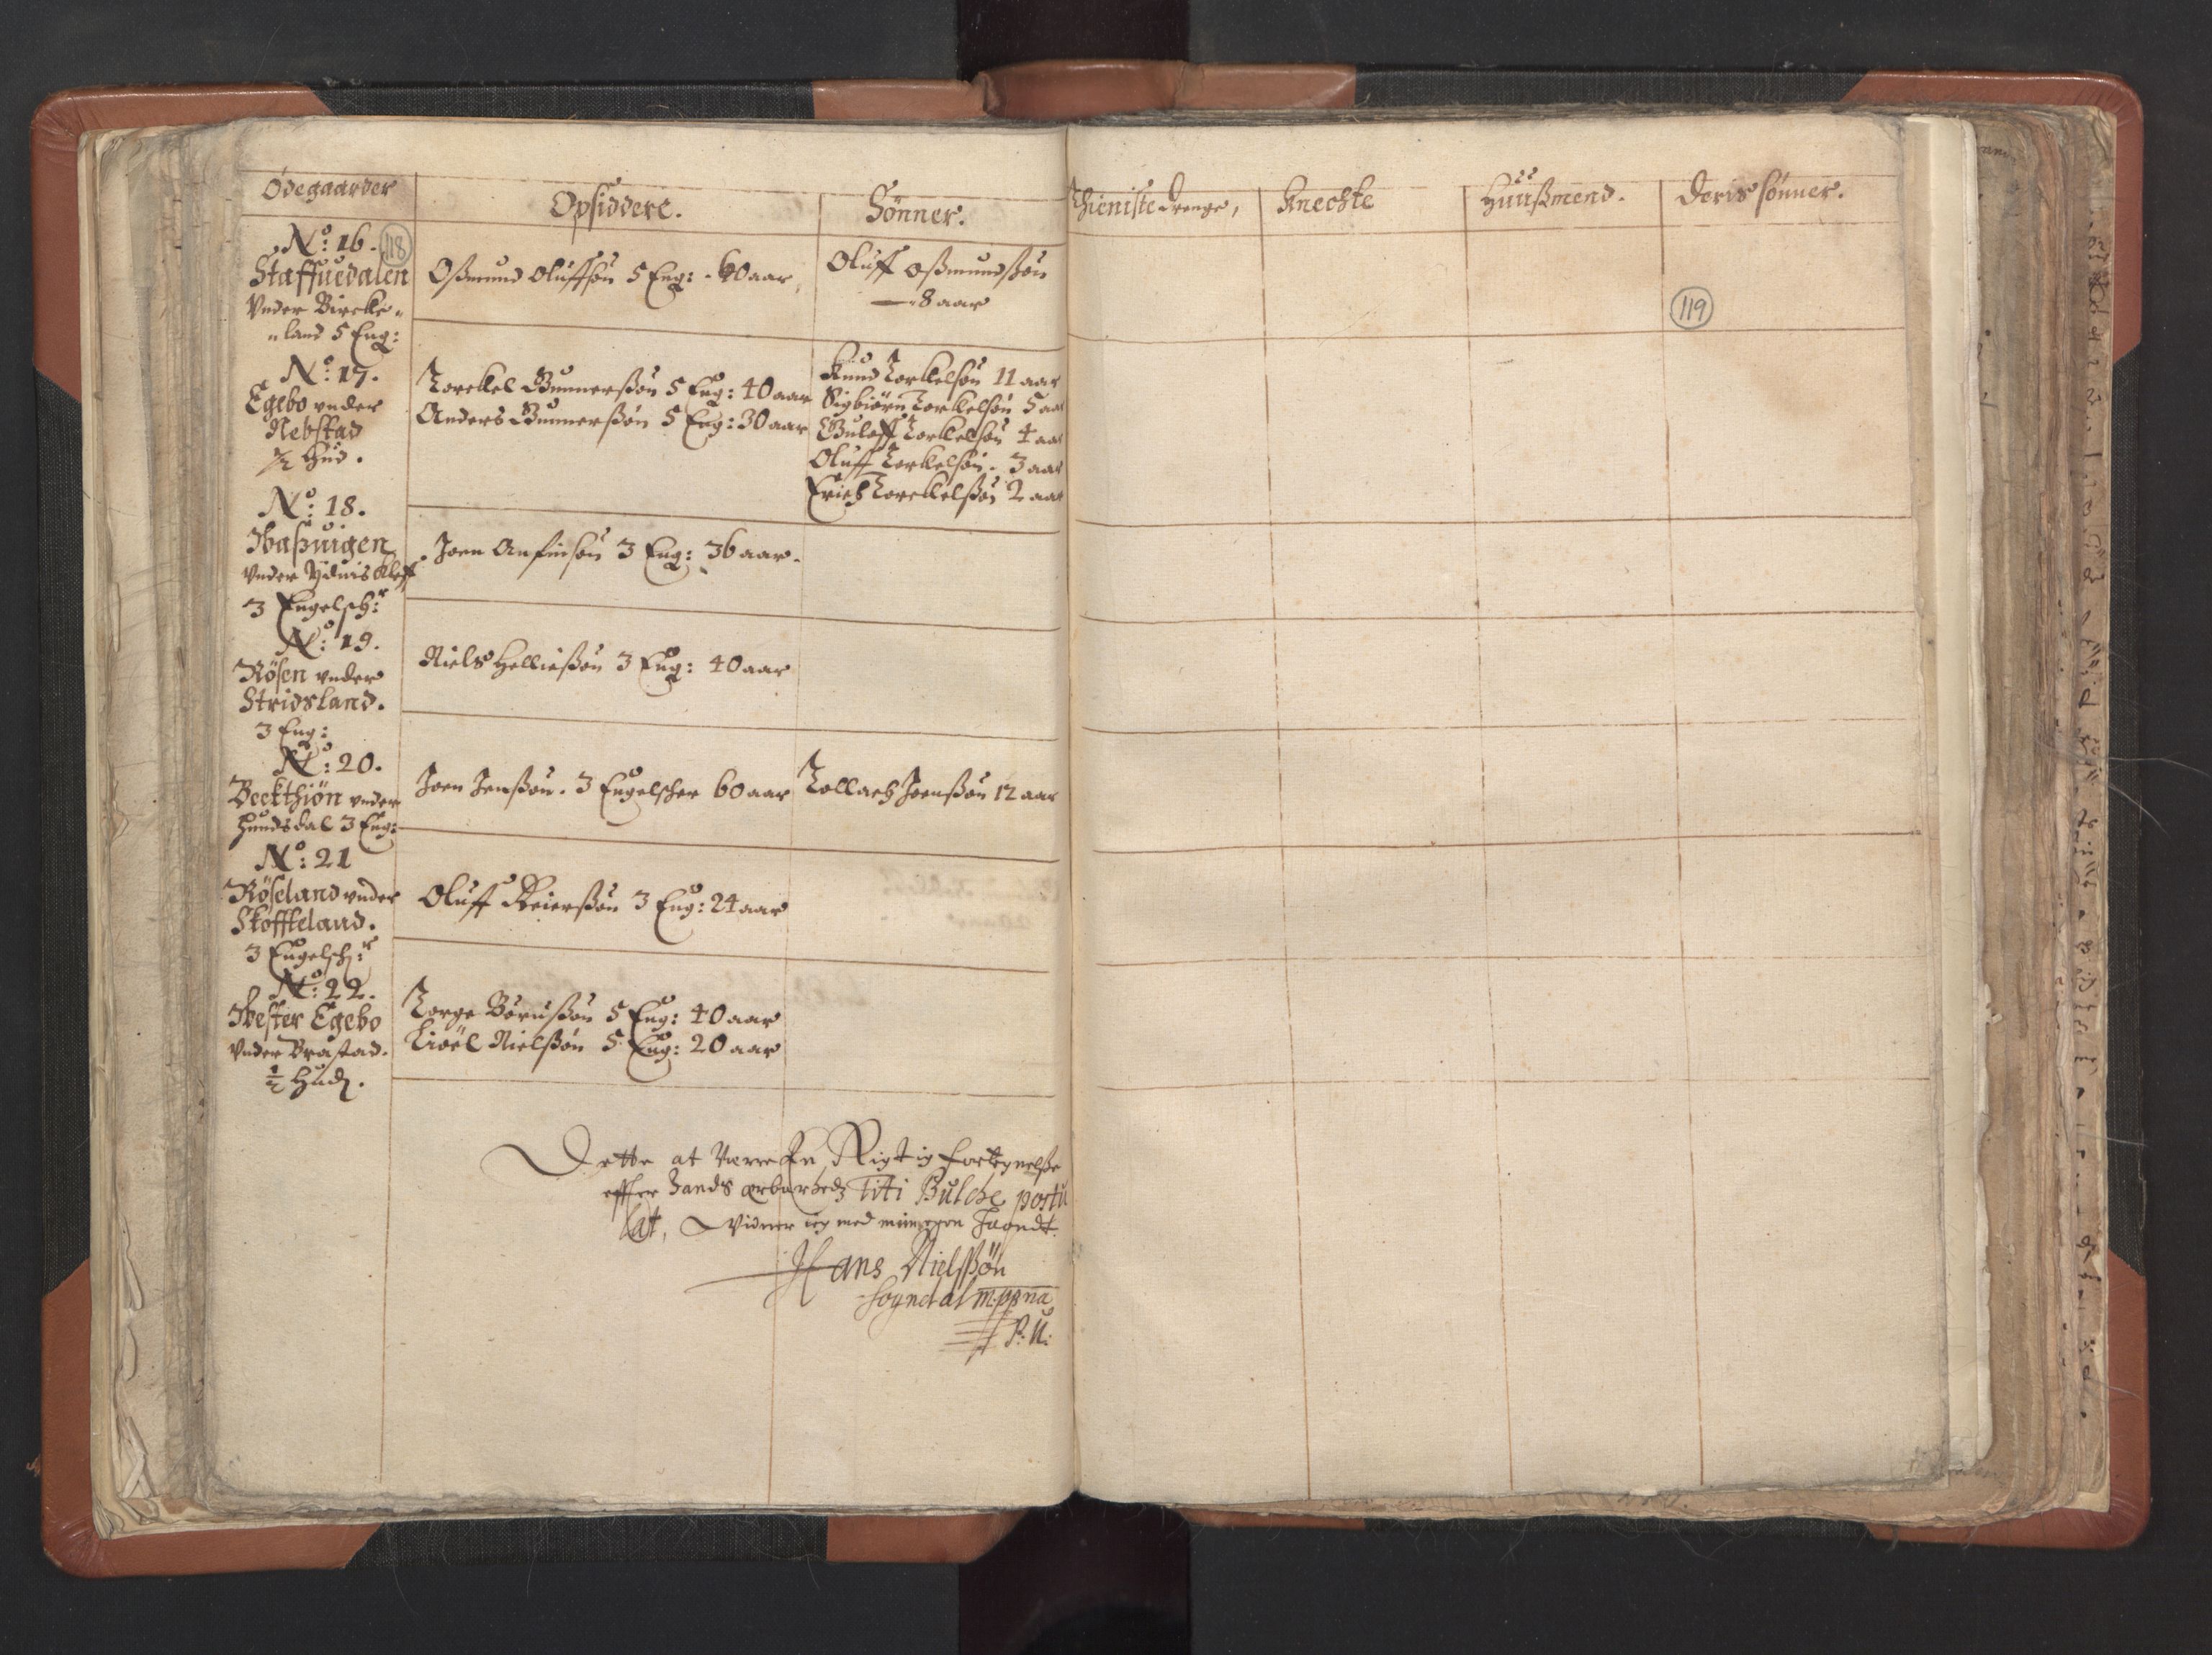 Ödegaarder
Opsiddere.
Sönner.
Thieniste drenge,
Knechte
Huußmend.
Deris sönner.
No: 16.
118
Staffuedalen
Vnder Bircke-
land 5 Eng:
Oßmund Oluffsøn 5 Eng: - 60 aar
Oluff Oßmundsßøn
8 aar
119
No: 17.
Egebo vnder
Nebstad
1/2 Hud.
Torckel Gunnersßøn 5 Eng: 40 aar
Anders Gunnersßøn 5 Eng: 30 aar
Knud Torkelsøn 11 aar
Sigbiørn Torkelsøn 5 aar
Guleff Torkelsøn 4 aar
Oluff Torkelsøn. 3 aar
Erich Torckelsßøn 2 aar
No: 18.
Vnder
3 Engelsch:r
Joen Anfinsøn 3 Eng: 36 aar.
No: 19.
Rösen vnder
Stridsland.
3 Eng:
Niels Helliesßøn 3 Eng: 40 aar
No: 20.
Beckthiøn vnder
Hundsdal 3 Eng:
Joen Jensßøn. 3 Engelscher 60 aar
Tollach Joensßøn 12 aar
No: 21
Röseland vnder
Skoffteland.
3 Engelsch:r
Oluff Reiersßøn 3 Eng: 24 aar
No: 22.
Wester Egebo
Vnder Brastad.
1/2 Hud.
Torge Börrusßøn 5 Eng: 40 aar
Kiöel Nielsßøn 5 Eng: 20 aar
Dette at Verre En Rigtig fortegnelße
effter hands erbarheds Titi Bulche postu
lat, Vidner ieg med min egen Haandt.
Hans Nielßßön
Sogndal mppria
P: U: